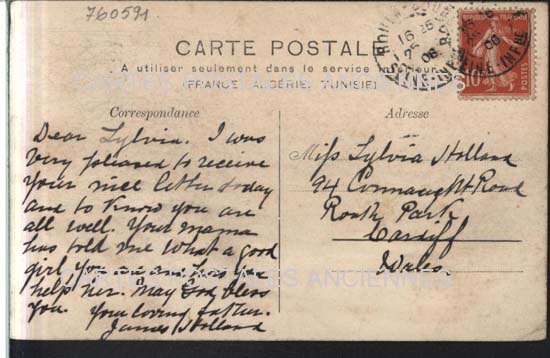 760591
CARTE POSTALE
A utiliser seulement dans le service intérieur
(FRANCE, ALGÉRIE, TUNISIE)
Correspondance
Adresse
Dear Sylvia. I was
very pleased to receive
your nice letter today
and to know you are
all well. Your mama
has told me what a good
girl you are and how you
help her. May God bless
you. Your loving father.
James Holland
Miss Sylvia Holland
94 Connaught Road
Roath Park
Cardiff
Wales
CARTES POSTALES ANCIENNES
REPUBLIQUE FRANÇAISE
10
POSTES
16
25
06
SEINE INFRE